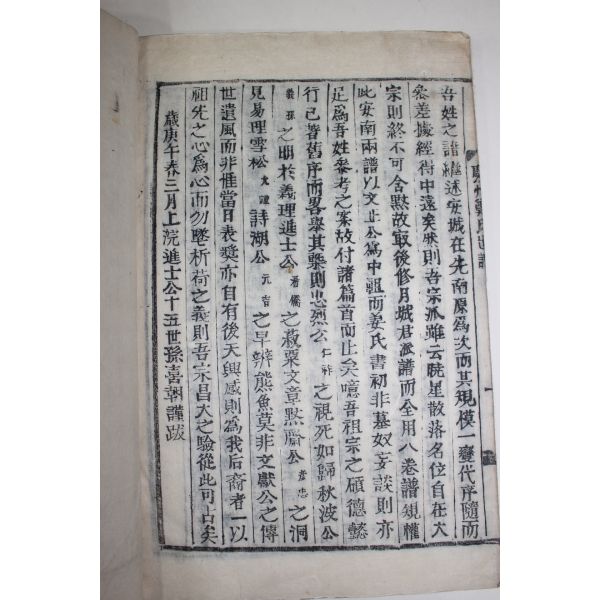 吾姓之譜繼述安城在先南原爲次而其規模一變代序隨而
叅差據經得中遠矣然則吾宗派雖云晓星散落名位自在大
宗則終不可含默故取後修月城君派譜而全用八卷譜規權
此安南兩譜以文止公爲中
而姜氏書初非墓奴妄談則亦
足爲吾姓叅考之案故付諸篇首而止矣噫吾祖宗之碩德懿
行已著舊序而畧擧其槩則忠烈公仁祥之視死如歸秋波公
義孫之明於義理進士公
之菽粟文章默齋公彦忠之洞
見易理雪松
詩湖公元吉之早辨熊魚莫非文獻公之傳
世遺風而非惟當日表奬亦自有後天興感則爲我后裔者一以
祖先之心爲心而勿墜析荷之義則吾宗昌大之驗從此可占矣
歲庚午春三月上浣進士公十五世孫喜朝謹跋
慶州鄭氏世譜